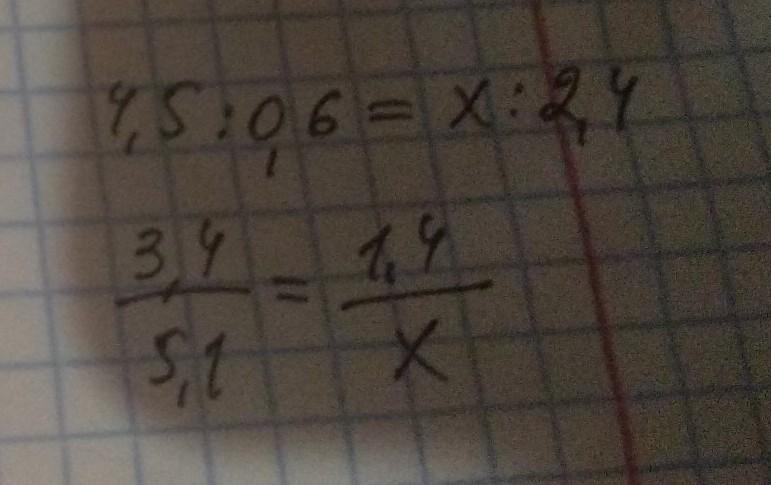 4,5 : 0,6 = x : 2,4
3,4/5,1 = 1,4/x